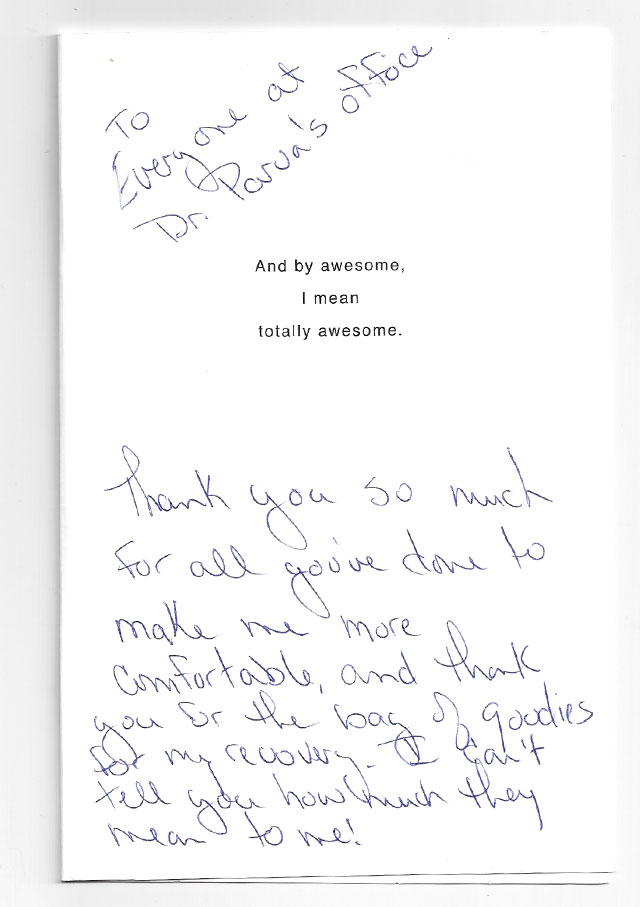 To
Everyone at
Dr. Parva's office
And by awesome,
I mean
totally awesome.
Thank you so much
for all you've done to
make me more
comfortable, and thank
you for the bag of goodies
for my recovery. I can't
tell you how much they
mean to me!